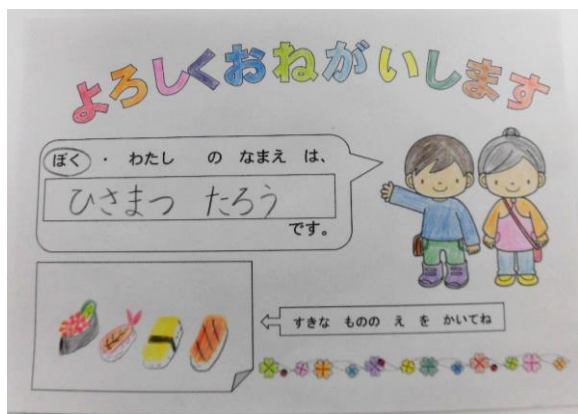 よろしくおねがいします
ぼく ・ わたし の なまえ は、
ひさまつ たろう
です。
すきな ものの え を かいてね